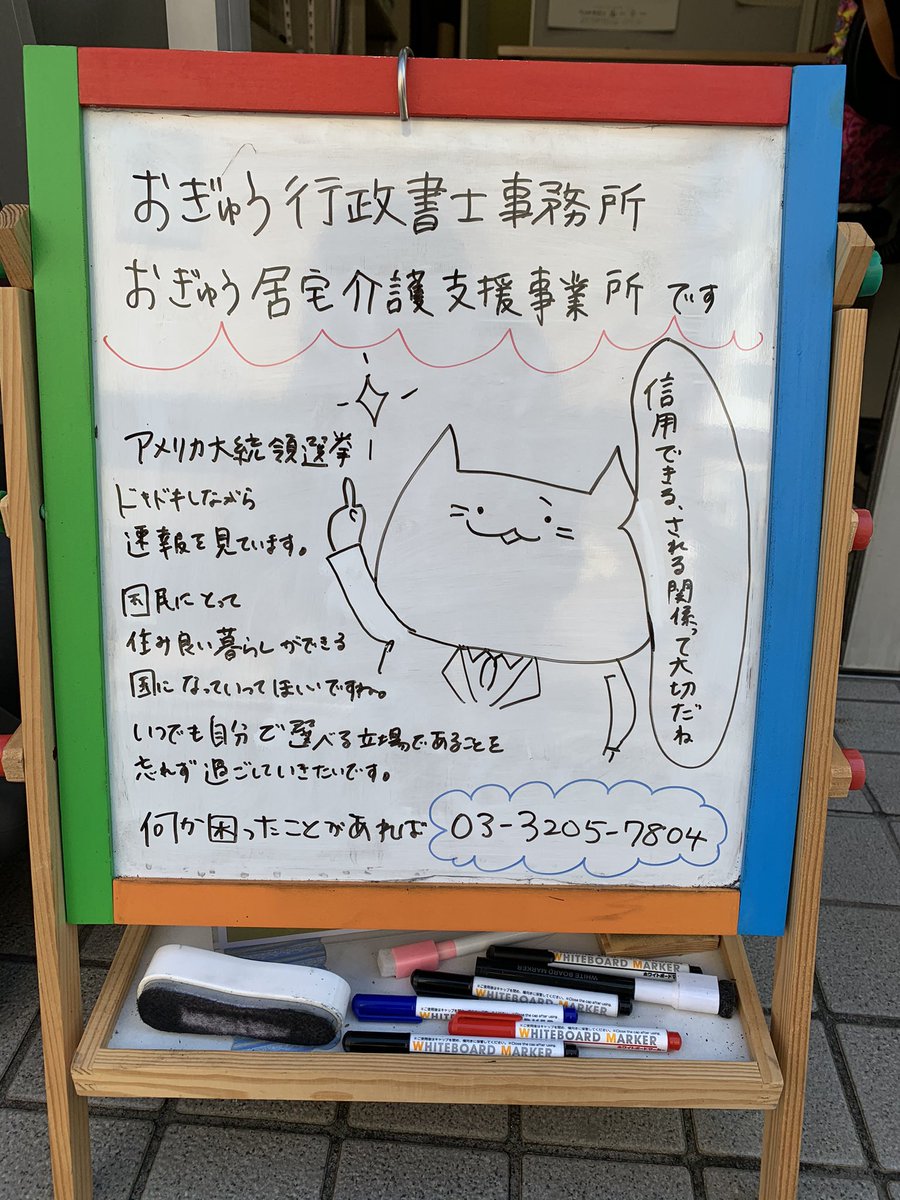 おぎゅう行政書士事務所
おぎゅう居宅介護支援事業所です
アメリカ大統領選挙
ドキドキしながら
速報を見ています。
国民にとって
住み良い暮らしができる
国になっていってほしいですね。
いつでも自分で選べる立場であることを
忘れず過ごしていきたいです。
信用できる、される関係って大切だね
何か困ったことがあれば 03-3205-7804
WHITEBOARD MARKER
WHITEBOARD MARKER
WHITEBOARD MARKER
WHITEBOARD MARKER
WHITEBOARD MARKER
WHITEBOARD MARKER